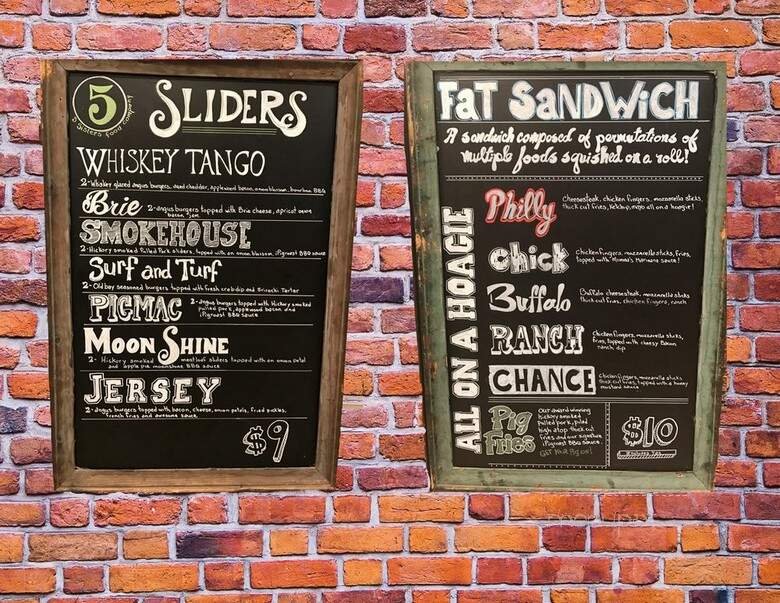 5
5 Sisters Food Company
SLIDERS
WHISKEY TANGO
2-Whiskey glazed angus burgers, aged cheddar, applewood bacon, onion blossom, bourbon BBQ
Brie
2-angus burgers topped with Brie cheese, apricot
bacon jam
SMOKEHOUSE
2-Hickory smoked Pulled Pork sliders, topped with an onion blossom, Pigwest BBQ sauce
Surf and Turf
2-Old bay seasoned burgers topped with fresh crab dip and Sriracha Tarter
PIGMAC
2-angus burgers topped with Hickory smoked
pulled pork, applewood bacon and
Pigwest BBQ sauce
MOON SHINE
2- Hickory smoked meatloaf sliders topped with an onion petal
and apple pie moonshine BBQ sauce
JERSEY
2-angus burgers topped with bacon, cheese, onion petals, fried pickles,
french fries and awesome sauce
$9
FAT SANDWiCH
A sandwich composed of permutations of
multiple foods squished on a roll!
ALL ON A HOAGIE
Philly
Cheesesteak, chicken fingers, mozzarella sticks,
thick cut fries, ketchup, mayo all on a hoagie!
Chick
Chicken fingers, mozzarella sticks, fries,
topped with Mimma's Marinara sauce!
Buffalo
Buffalo cheesesteak, mozzarella sticks
thick cut fries, chicken fingers, ranch
RANCH
Chicken fingers, mozzarella sticks,
fries, topped with cheesy Bacon
ranch dip
CHANCE
Chicken fingers, mozzarella sticks
thick cut fries, topped with a honey
mustard sauce
Pig
FRIES
Our award winning
hickory smoked
pulled pork, piled
high atop thick cut
fries and our signature
Pigwest BBQ sauce.
GET YOUR PIG ON!
$10